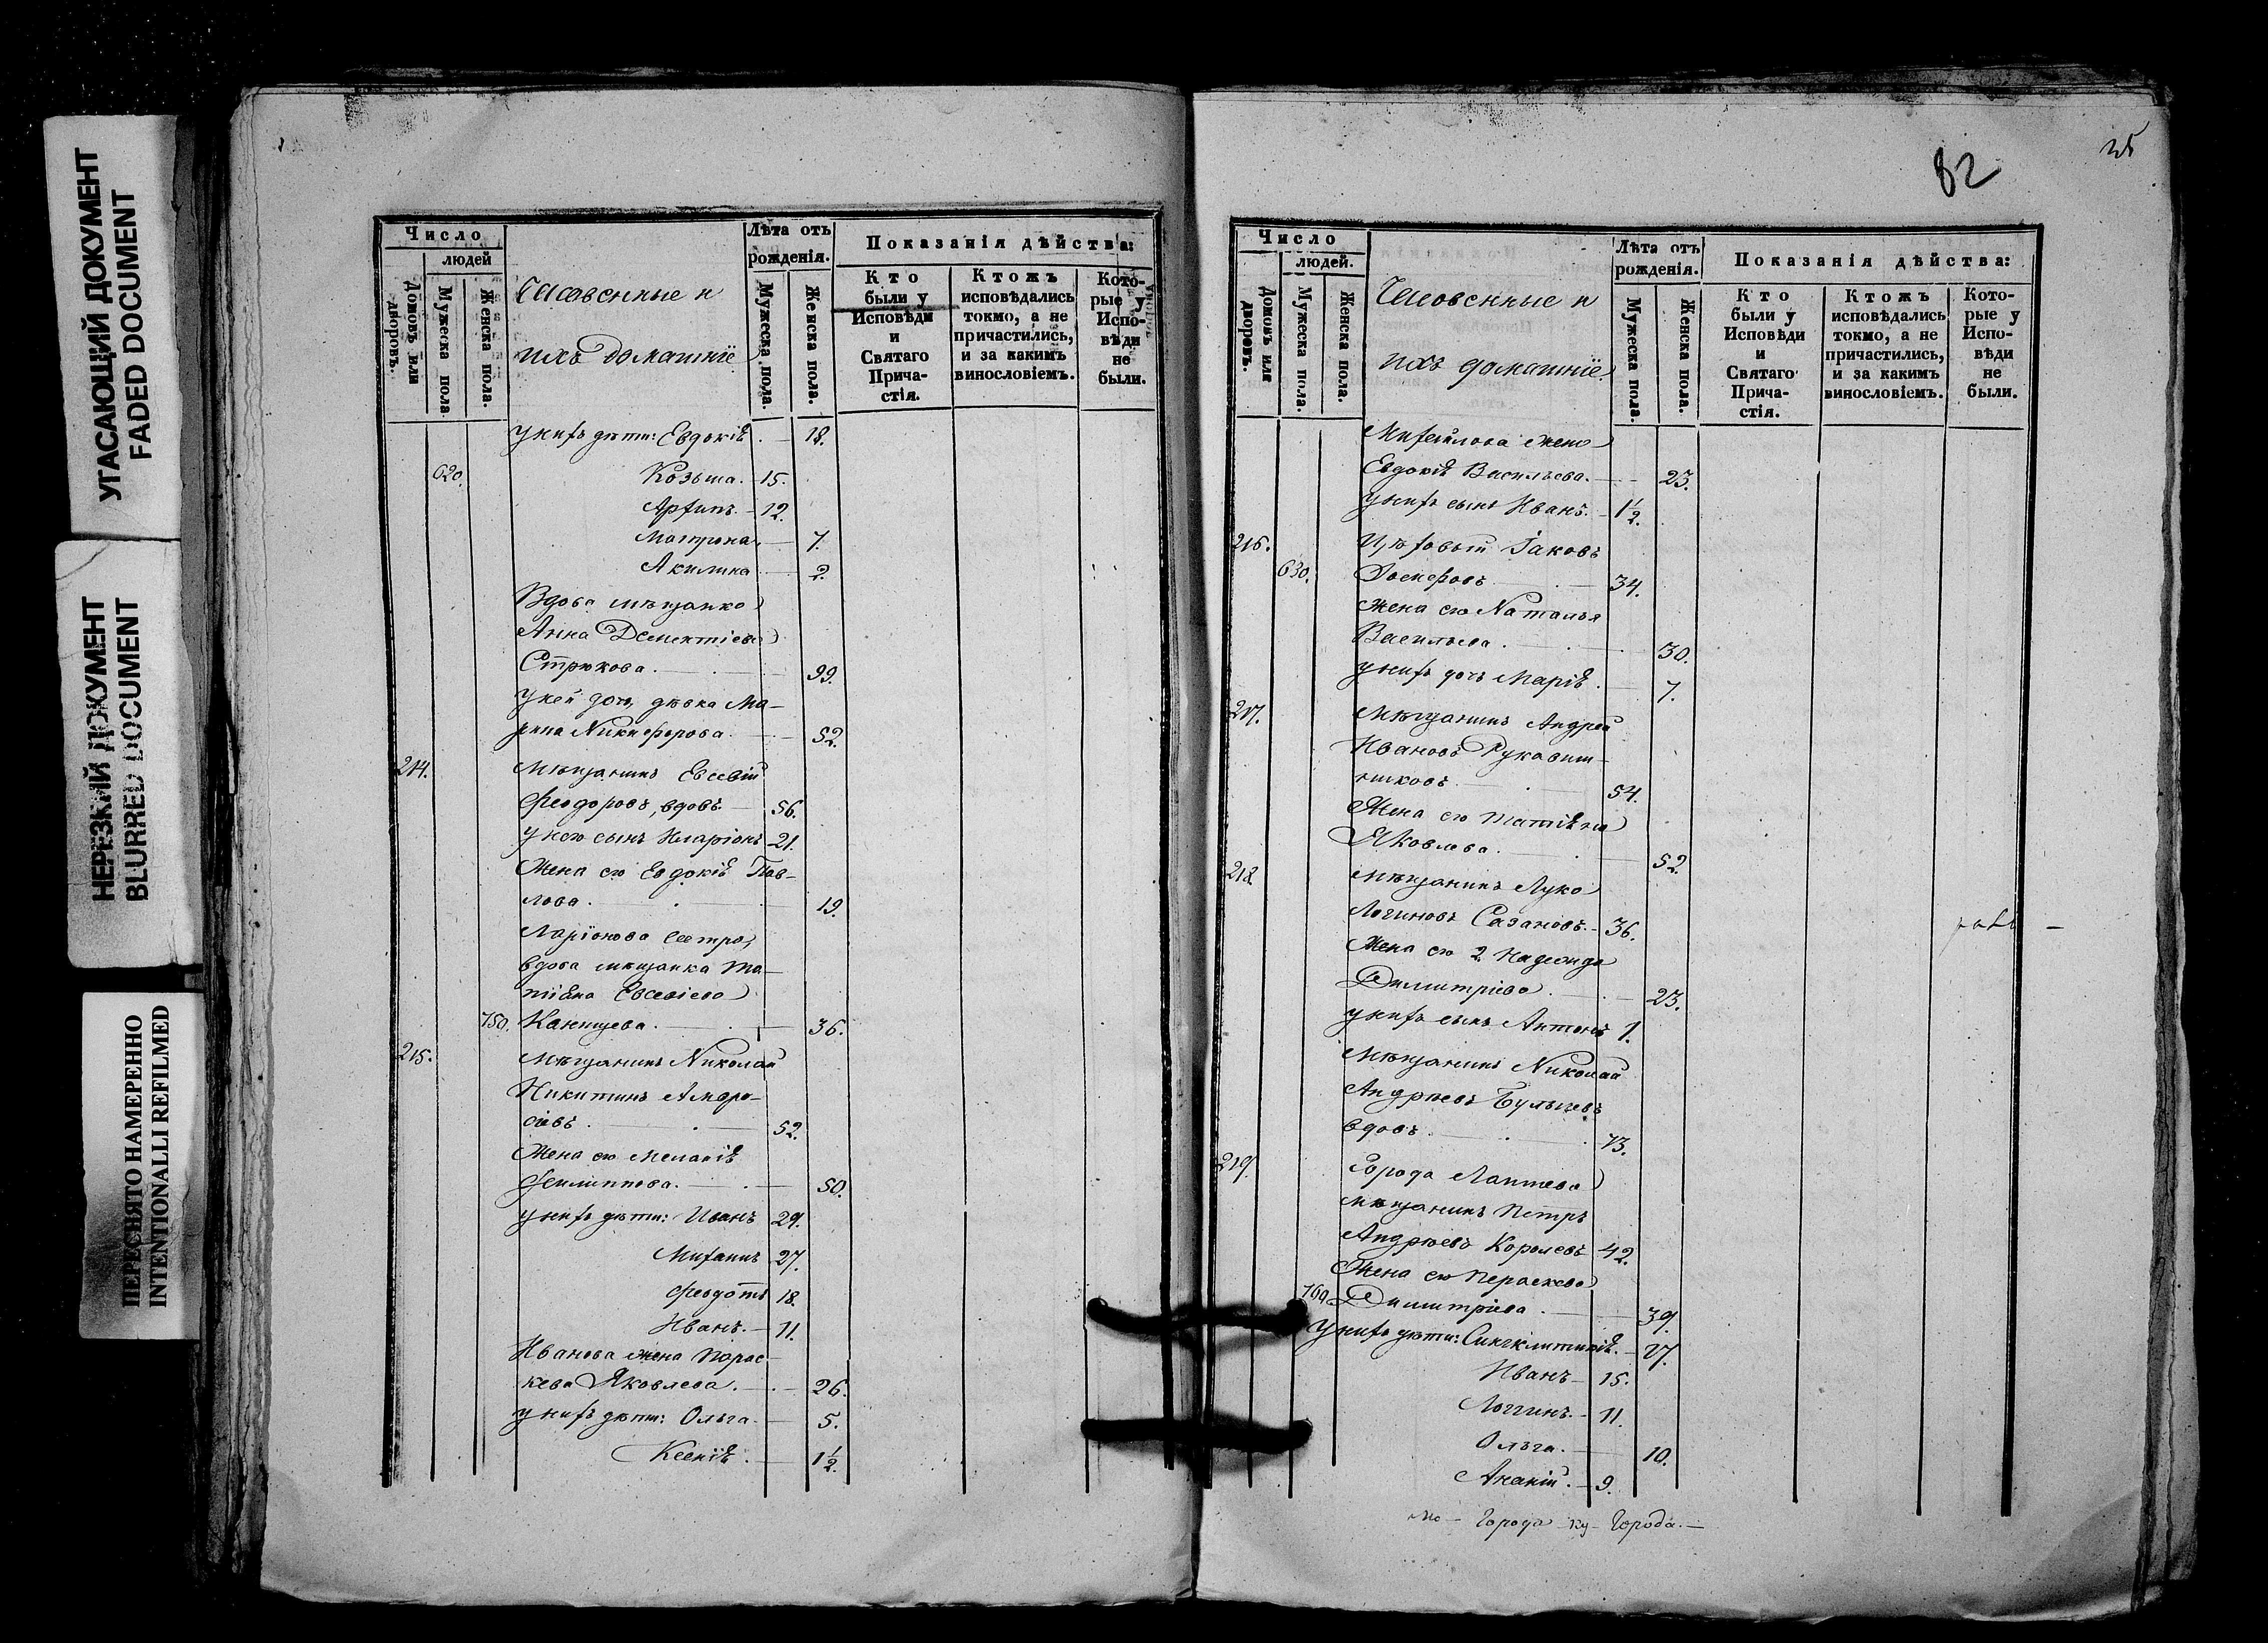 УГАСАЮЩИЙ ДОКУМЕНТ
FADED DOCUMENT
НЕРЕЗКИЙ ДОКУМЕНТ
BLURRED DOCUMENT
ПЕРЕСНЯТО НАМЕРЕННО
INTENTIONALLI REFILMED
Число
людей
Домовъ или дворовъ.
Мужеска пола.
Женска пола.
их домашніе
Лѣта отъ рожденія.
Мужеска пола.
Женска пола.
Показанія дѣйства:
Кто были у Исповѣди и Святаго Причастія.
Ктожъ исповѣдались токмо, а не причастились, и за какимъ винословіемъ.
Которые у Исповѣди не были.
у нихъ дѣти: Евдокія 18.
620. Козьма. 15.
Архипъ. 12.
Матрона. 7.
Акилина 2.
Вдова мѣщанка
Анна Дементіева
Стрюкова. 99.
у ней дочь, дѣвка Ма-
рина Никифорова. 52.
214. Мѣщанинъ Евсевій
Феодоровъ, вдовъ 56.
у него сынъ Иларіонъ 21.
Жена его Евдокія Пав-
лова. 19.
Ларіонова сестра,
вдова мѣщанка Та-
тіана Евсевіева
750. 36.
215. Мѣщанинъ Николай
Никитинъ Амвро-
сіевъ. 52.
Жена его Меланія
Филиппова. 50.
у нихъ дѣти: Иванъ 29.
Михаилъ 27.
Феодотъ 18.
Иванъ. 11.
Иванова жена Парас-
кева Яковлева. 26.
у нихъ дѣти: Ольга 5.
Ксенія. 1½.
82
Число
людей.
Домовъ или дворовъ.
Мужеска пола.
Женска пола.
ихъ домашніе.
Лѣта отъ рожденія.
Мужеска пола.
Женска пола.
Показанія дѣйства:
Кто были у Исповѣди и Святаго Причастія.
Ктожъ исповѣдались токмо, а не причастились, и за какимъ винословіемъ.
Которые у Исповѣди не были.
Михайлова жена
Евдокія Васильева. 23.
у нихъ сынъ Иванъ. 1½.
216. Цѣховый Іаковъ
630. 34.
жена его Наталья
Васильева. 30.
у нихъ дочь Марія. 7.
217. Мѣщанинъ Андрей
Ивановъ Рукавиш-
никовъ. 54.
Жена его Татіяна
Яковлева. 52.
218. Мѣщанинъ Лука
Логиновъ Сазановъ. 36.
Жена его 2. Надежда
Димитріева. 23.
у нихъ сынъ Антонъ 1.
Мѣщанинъ Николай
Андреевъ Булычевъ
вдовъ. 73.
219. Города Лаптева
мѣщанинъ Петръ
Андреевъ Королевъ 42.
Жена его Параскева
760. Димитріева. 39.
у нихъ дѣти: Синклитикія. 17.
Иванъ 15.
Логгинъ. 11.
Ольга. 10.
Ананій. 9.
Города Города.